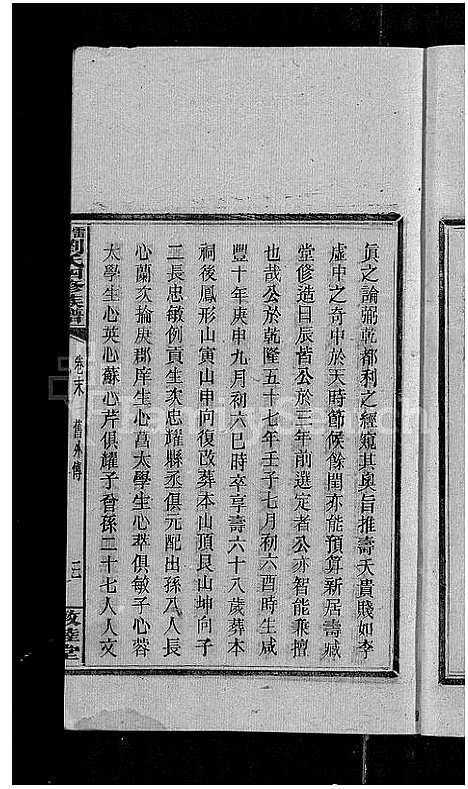 眞之論弼乾都利之經窺其奧旨推壽夭貴賤如李
虛中之奇中於天時節候餘閏亦能預算新居壽藏
堂修造日辰皆公於三年前選定者公亦智能兼擅
也哉公於乾隆五十七年壬子七月初六酉時生咸
豐十年庚申九月初六巳時卒享壽六十八歲葬本
祠後鳳形山寅山申向復改葬本山頂艮山坤向子
二長忠敏例貢生次忠耀縣丞俱元配出孫八人長
心蘭次掄庚郡庠生心菖太學生心萃俱敏子心蓉
太學生心英心蘇心芹俱耀子曾孫二十七人人文
劉氏四修族譜
卷末
舊外傳
三
敦睦堂
FamilySearch